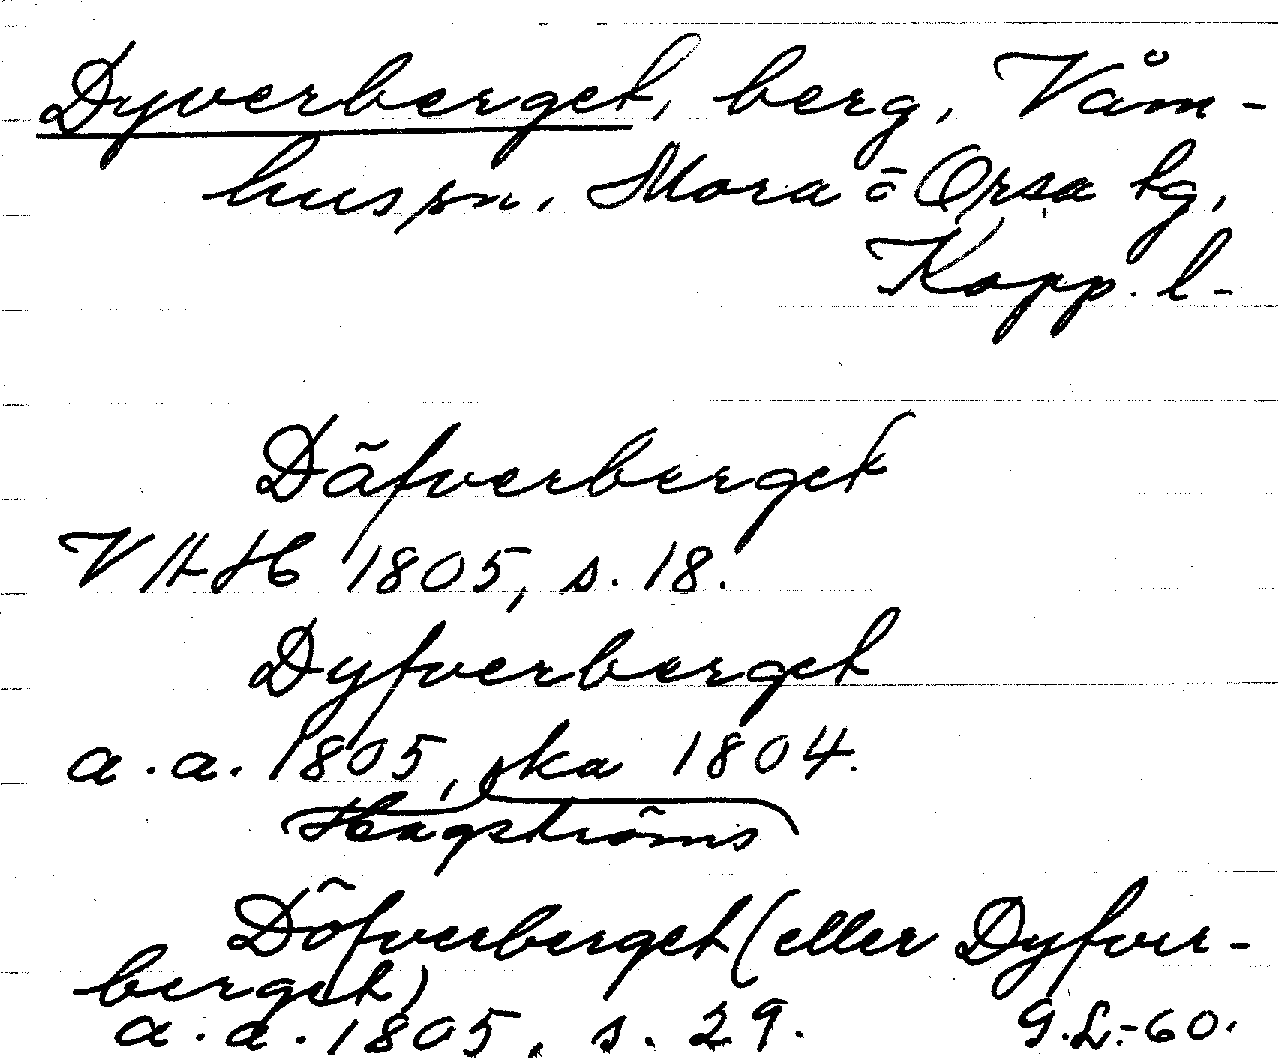 Dyverberget, berg, Våm-
hus sn, Mora o Orsa tg,
Kopp. l-
Däfverberget
VAH 1805, s. 18.
Dyfverberget
a.a. 1805, ka 1804.
Hagströms
Döfverberget (eller Dyfver-
berget)
a.a. 1805, s. 29. G.L.-60.